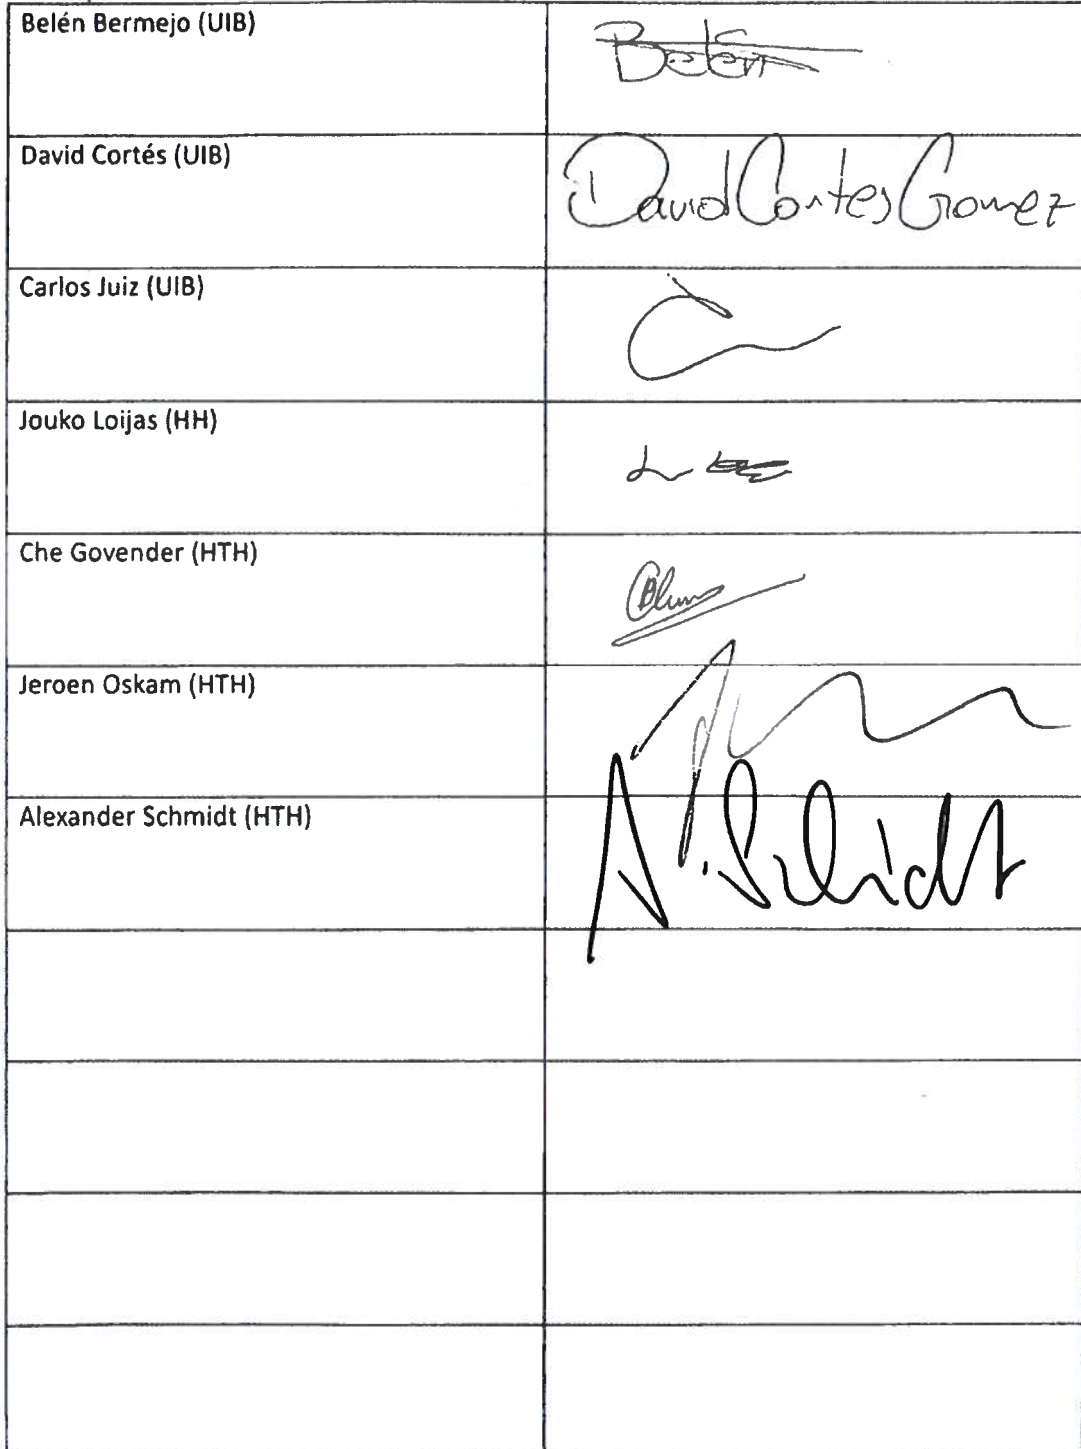 Belén Bermejo (UIB)
Belén
David Cortés (UIB)
David Cortes Gomez
Carlos Juiz (UIB)
Jouko Loijas (HH)
Che Govender (HTH)
Jeroen Oskam (HTH)
Alexander Schmidt (HTH)
A. Schmidt